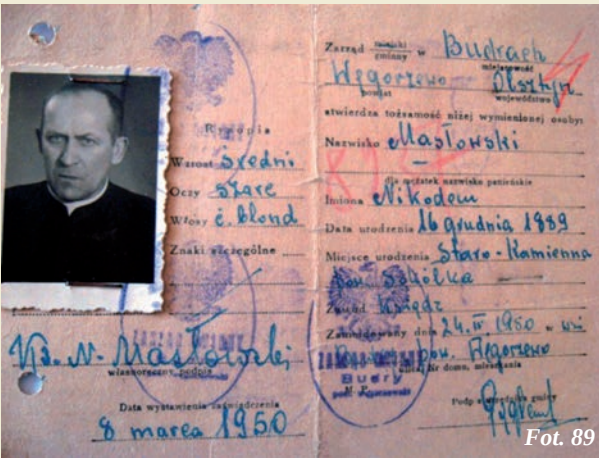 Rysopis
Wzrost średni
Oczy szare
Włosy c. blond
Znaki szczególne
Ks. N. Masłowski
własnoręczny podpis
Data wystawienia zaświadczenia
8 marca 1950
Zarząd miejski
gminy w Budrach
miejscowość
Węgorzewo Olsztyn
powiat województwo
stwierdza tożsamość niżej wymienionej osoby:
Nazwisko Masłowski
—
dla mężatek nazwisko panieńskie
Imiona Nikodem
Data urodzenia 16 grudnia 1889
Miejsce urodzenia Staro-Kamienna
pow. Sokółka
Zawód Ksiądz
Zameldowany dnia 24.IV 1950 w wsi
pow. Węgorzewo
ulica, Nr domu, mieszkania
M. P.
Budry
Fot. 89